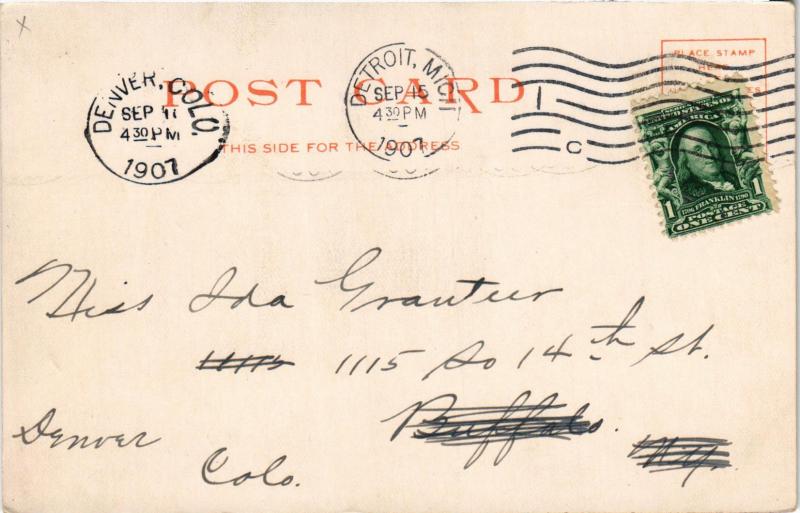 x
POST CARD
THIS SIDE FOR THE ADDRESS
DENVER, COLO.
SEP 17
4 30 PM
1907
DETROIT, MICH
SEP 15
4 30 PM
1907
1
C
PLACE STAMP
HERE
AMERICA
1706 FRANKLIN 1790
1
POSTAGE
ONE CENT
Miss Ida Granteer
1115 1115 So 14th St.
Buffalo.
N.Y.
Denver
Colo.